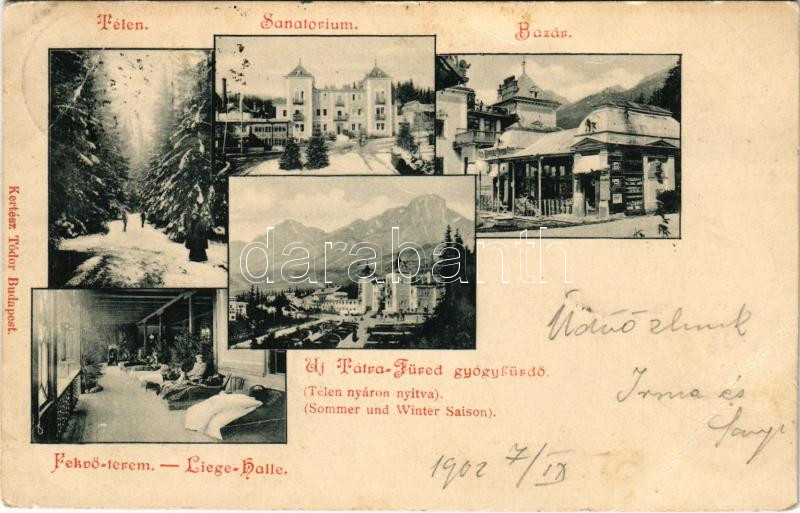 Télen.
Sanatorium.
Bazár.
Kertész Tódor Budapest.
darabanth
Uj Tátra-Füred gyógyfürdő.
(Télen nyáron nyitva).
(Sommer und Winter Saison).
Fekvő-terem. — Liege-Halle.
Üdvözlünk
Irma és
1902 7/IX